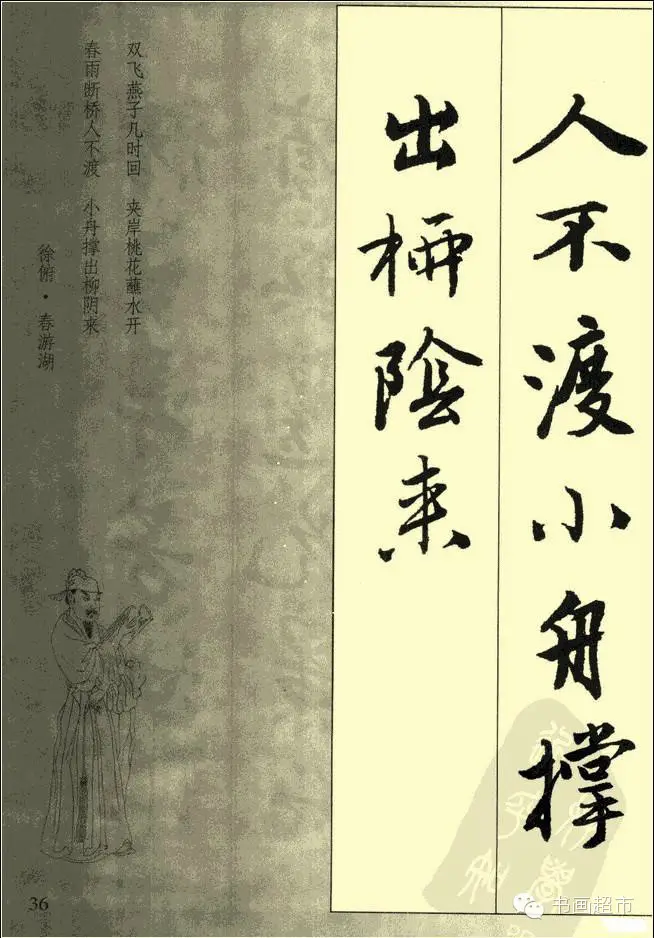 人不渡小舟撑
出柳陰来
双飞燕子几时回 夹岸桃花蘸水开
春雨断桥人不渡 小舟撑出柳阴来
徐俯·春游湖
36
书画超市